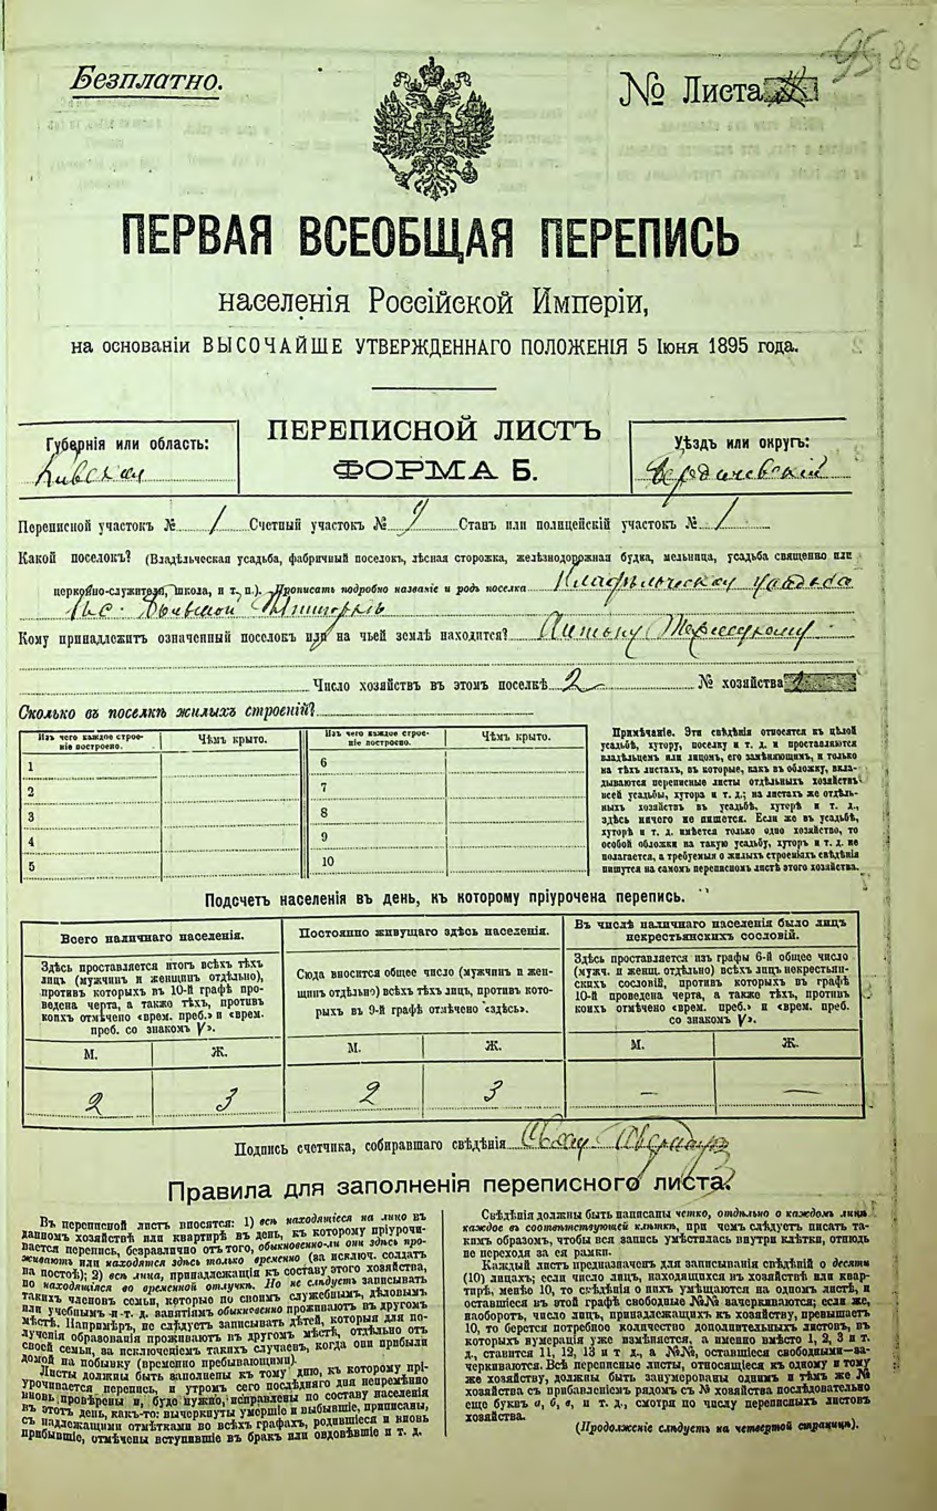 95 86
Безплатно.
№ Листа
ПЕРВАЯ ВСЕОБЩАЯ ПЕРЕПИСЬ
населенія Россійской Имперіи,
на основаніи ВЫСОЧАЙШЕ УТВЕРЖДЕННАГО ПОЛОЖЕНІЯ 5 Іюня 1895 года.
ПЕРЕПИСНОЙ ЛИСТЪ
ФОРМА Б.
Губернія или область:
Кіевская
Уѣздъ или округъ:
Бердичевскій
Переписной участокъ № 1 Счетный участокъ № 9 Станъ или полицейскій участокъ № 1
Какой поселокъ? (Владѣльческая усадьба, фабричный поселокъ, лѣсная сторожка, желѣзнодорожная будка, мельница, усадьба священно или
церковно-служителя, школа, и т. п.). Прописать подробно названіе и родъ поселка Владѣльческая усадьба
Кому принадлежитъ означенный поселокъ или на чьей землѣ находится? Антону
Число хозяйствъ въ этомъ поселкѣ 2 № хозяйства 2
Сколько въ поселкѣ жилыхъ строеній?
Изъ чего каждое строеніе построено. Чѣмъ крыто. Изъ чего каждое строеніе построено. Чѣмъ крыто.
1 6
2 7
3 8
4 9
5 10
Примѣчаніе. Эти свѣдѣнія относятся къ цѣлой
усадьбѣ, хутору, поселку и т. д. и проставляются
владѣльцемъ или лицомъ, его замѣняющимъ, и только
на тѣхъ листахъ, въ которые, какъ въ обложку, вкла-
дываются переписные листы отдѣльныхъ хозяйствъ
всей усадьбы, хутора и т. д.; на листахъ же отдѣль-
ныхъ хозяйствъ въ усадьбѣ, хуторѣ и т. д.,
здѣсь ничего не пишется. Если же въ усадьбѣ,
хуторѣ и т. д. имѣется только одно хозяйство, то
особой обложки на такую усадьбу, хуторъ и т. д. не
полагается, а требуемыя о жилыхъ строеніяхъ свѣдѣнія
пишутся на самомъ переписномъ листѣ этого хозяйства.
Подсчетъ населенія въ день, къ которому пріурочена перепись.
Всего наличнаго населенія.
Здѣсь проставляется итогъ всѣхъ тѣхъ
лицъ (мужчинъ и женщинъ отдѣльно),
противъ которыхъ въ 10-й графѣ про-
ведена черта, а также тѣхъ, противъ
коихъ отмѣчено «врем. преб.» и «врем.
преб. со знакомъ V».
М. Ж.
2 3
Постоянно живущаго здѣсь населенія.
Сюда вносится общее число (мужчинъ и жен-
щинъ отдѣльно) всѣхъ тѣхъ лицъ, противъ кото-
рыхъ въ 9-й графѣ отмѣчено «здѣсь».
М. Ж.
2 3
Въ числѣ наличнаго населенія было лицъ
некрестьянскихъ сословій.
Здѣсь проставляется изъ графы 6-й общее число
(мужч. и женщ. отдѣльно) всѣхъ лицъ некрестьян-
скихъ сословій, противъ которыхъ въ графѣ
10-й проведена черта, а также тѣхъ, противъ
коихъ отмѣчено «врем. преб.» и «врем. преб.
со знакомъ V».
М. Ж.
— —
Подпись счетчика, собиравшаго свѣдѣнія
Правила для заполненія переписного листа.
Въ переписной листъ вносятся: 1) всѣ находящіеся на лицо въ
данномъ хозяйствѣ или квартирѣ въ день, къ которому пріурочи-
вается перепись, безразлично отъ того, обыкновенно-ли они здѣсь про-
живаютъ или находятся здѣсь только временно (за исключ. солдатъ
на постоѣ); 2) всѣ лица, принадлежащія къ составу этого хозяйства,
но находящіяся во временной отлучкѣ. Но не слѣдуетъ записывать
такихъ членовъ семьи, которые по своимъ служебнымъ, дѣловымъ
или учебнымъ и т. д. занятіямъ обыкновенно проживаютъ въ другомъ
мѣстѣ. Напримѣръ, не слѣдуетъ записывать дѣтей, которыя для по-
лученія образованія проживаютъ въ другомъ мѣстѣ, отдѣльно отъ
своей семьи, за исключеніемъ такихъ случаевъ, когда они прибыли
домой на побывку (временно пребывающими).
Листы должны быть заполнены къ тому дню, къ которому прі-
урочивается перепись, и утромъ сего послѣдняго дня непремѣнно
вновь провѣрены и, буде нужно, исправлены по составу населенія
въ этотъ день, какъ-то: вычеркнуты умершіе и выбывшіе, приписаны,
съ надлежащими отмѣтками во всѣхъ графахъ, родившіеся и вновь
прибывшіе, отмѣчены вступившіе въ бракъ или овдовѣвшіе и т. д.
Свѣдѣнія должны быть написаны четко, отдѣльно о каждомъ лицѣ
каждое въ соотвѣтствующей клѣткѣ, при чемъ слѣдуетъ писать та-
кимъ образомъ, чтобы вся запись умѣстилась внутри клѣтки, отнюдь
не переходя за ея рамки.
Каждый листъ предназначенъ для записыванія свѣдѣній о десяти
(10) лицахъ; если число лицъ, находящихся въ хозяйствѣ или квар-
тирѣ, менѣе 10, то свѣдѣнія о нихъ умѣщаются на одномъ листѣ, и
оставшіеся въ этой графѣ свободные №№ зачеркиваются; если же,
наоборотъ, число лицъ, принадлежащихъ къ хозяйству, превышаетъ
10, то берется потребное количество дополнительныхъ листовъ, въ
которыхъ нумерація уже измѣняется, а именно вмѣсто 1, 2, 3 и т.
д., ставится 11, 12, 13 и т д., а №№, оставшіеся свободными—за-
черкиваются. Всѣ переписные листы, относящіеся къ одному и тому
же хозяйству, должны быть занумерованы однимъ и тѣмъ же №
хозяйства съ прибавленіемъ рядомъ съ № хозяйства послѣдовательно
еще буквъ а, б, в, и т. д., смотря по числу переписныхъ листовъ
хозяйства.
(Продолженіе слѣдуетъ на четвертой страницѣ).